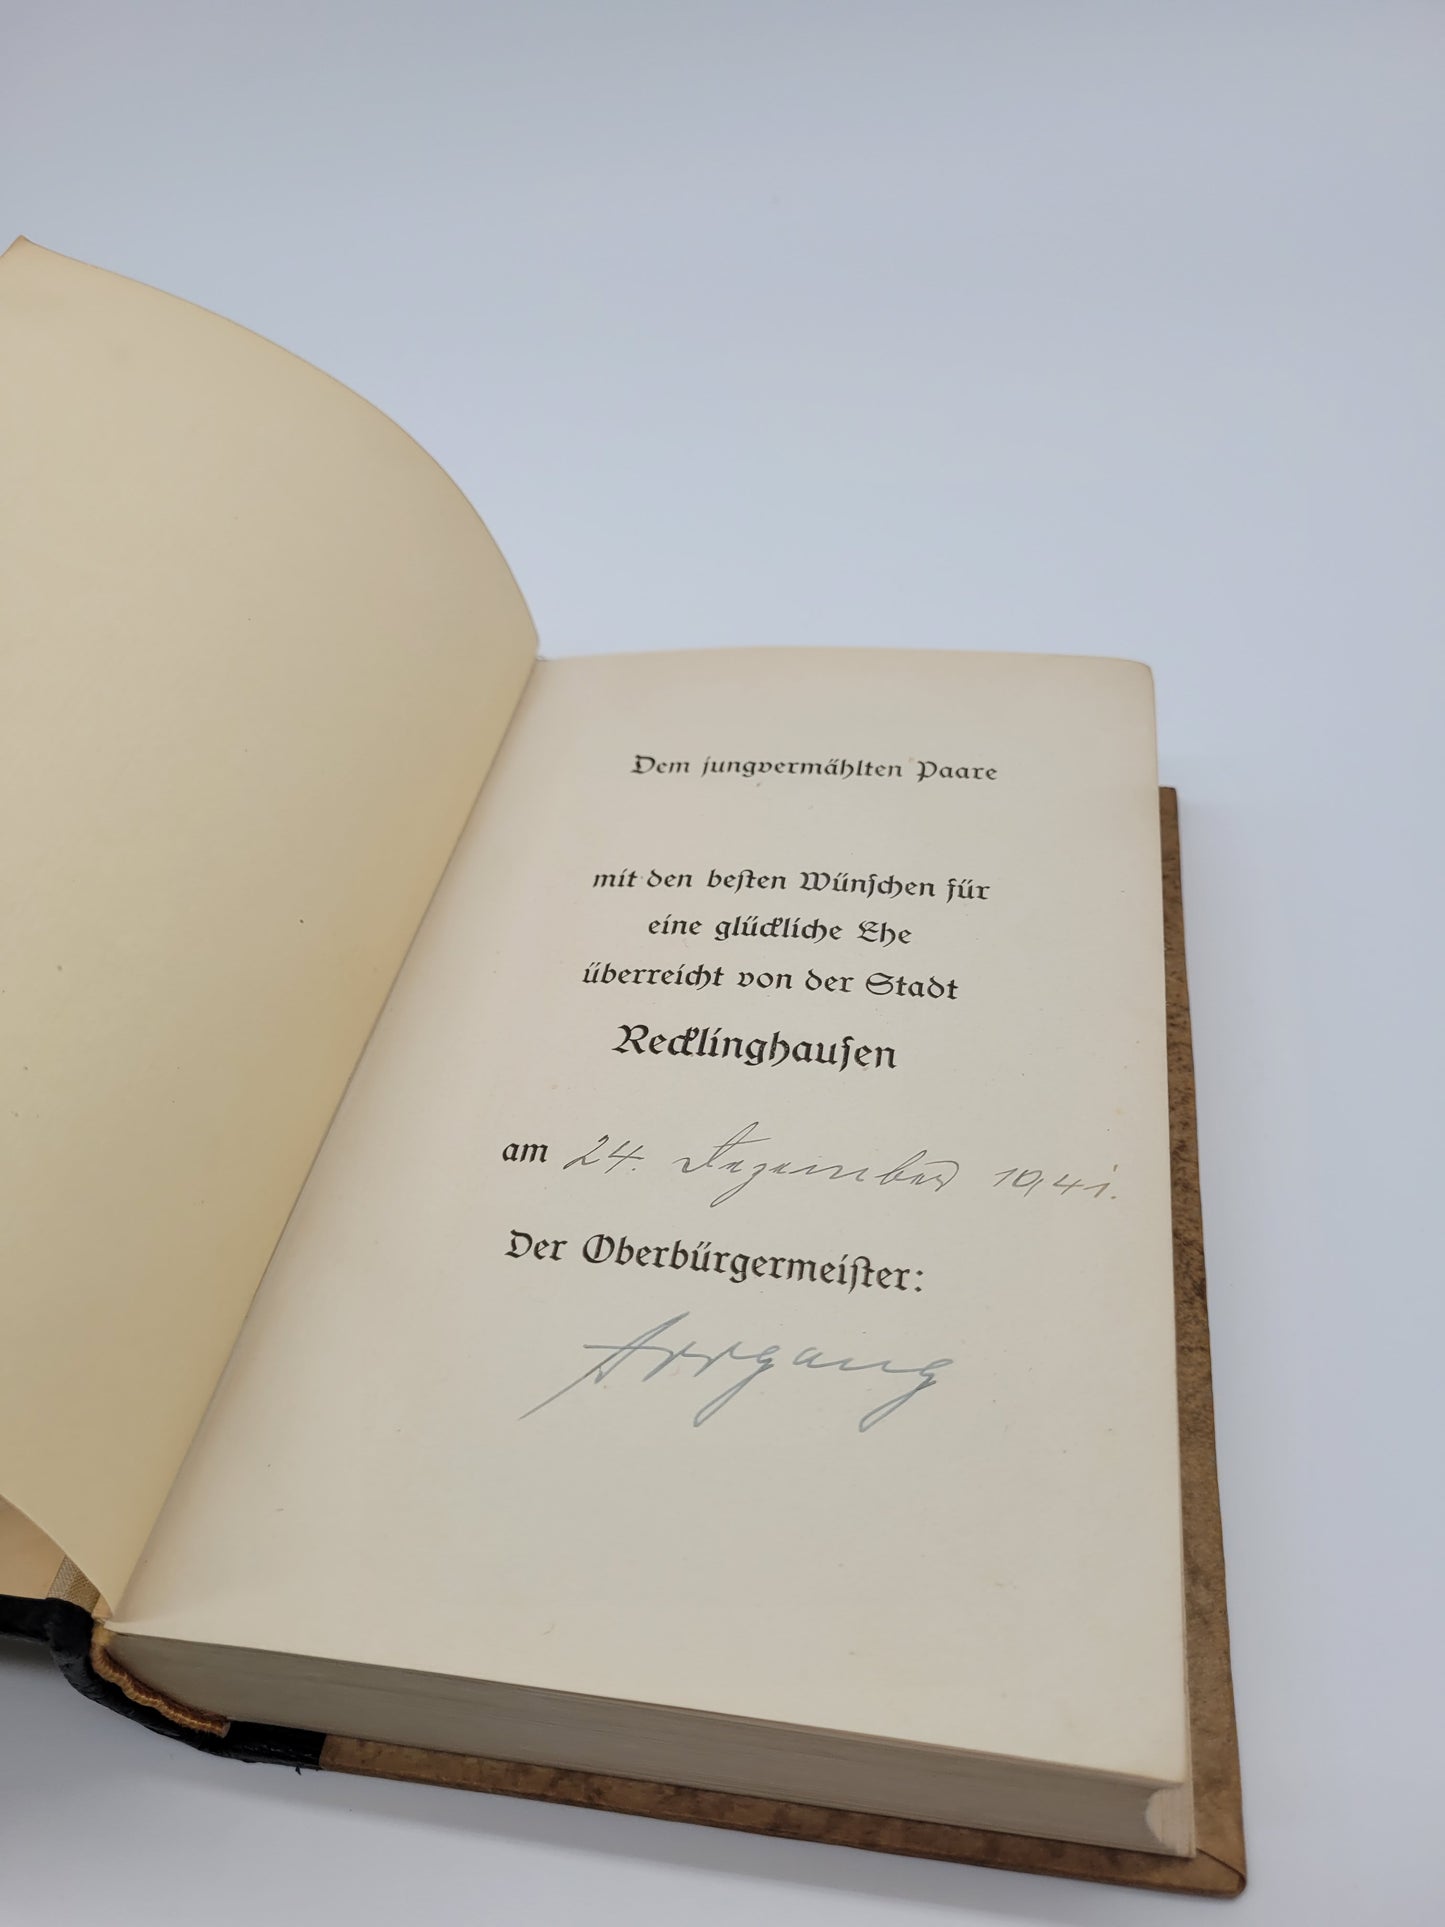 Dem jungvermählten Paare
mit den besten Wünschen für
eine glückliche Ehe
überreicht von der Stadt
Recklinghausen
am 24. Dezember 1941.
Der Oberbürgermeister:
Irrgang